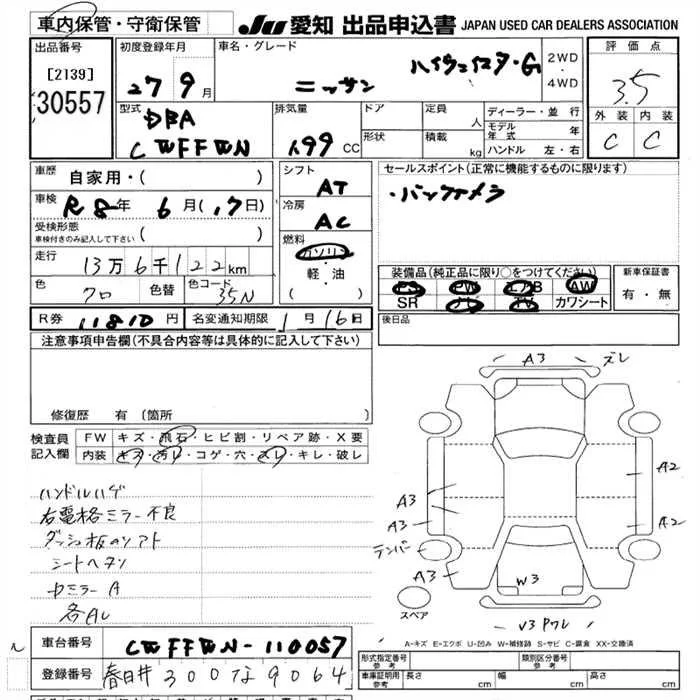 車内保管・守衛保管
JU 愛知 出品申込書 JAPAN USED CAR DEALERS ASSOCIATION
出品番号
[2139]
30557
初度登録年月
27 9月
車名・グレード
ニッサン ハイウェイスター・G
2WD
・
4WD
評価点
3.5
外装 内装
C C
型式
DBA
CWFFWN
排気量
1.99 CC
ドア
形状
定員 人
積載 kg
ディーラー・並行
モデル年式 年
ハンドル 左・右
車歴 自家用・( )
車検 R8年 6月(17日)
受検形態
車検付きのみ記入して下さい ( )
走行 13万6千122km
色 クロ 色替 色コード 35N
シフト AT
冷房 AC
燃料
ガソリン
・
軽・油
( )
セールスポイント(正常に機能するものに限ります)
・バックカメラ
装備品(純正品に限り○をつけてください)
PS PW エアB AW
SR ナビ TV カワシート
新車保証書
有・無
R券 11810円 名変通知期限 1月16日
後日品
注意事項申告欄(不具合内容等は具体的に記入して下さい)
修復歴 有 (箇所
検査員
記入欄
FW キズ・飛石・ヒビ割・リペア跡・X要
内装 キズ・汚レ・コゲ・穴・スレ・キレ・破レ
ハンドルハゲ
右電格ミラー不良
ダッシュ板のソフト
シートヘタリ
中ミラーA
各AL
A3 ズレ
A2
A2
A3
A3
テンパー
A3
W3
V3 Pワレ
スペア
A-キズ E-エクボ U-凹み W-補修跡 S-サビ C-腐食 XX-交換済
車台番号 CWFFWN-110057
登録番号 春日井 300な9064
形式指定番号
参考
類別区分番号
参考
車庫証明用
参考
長さ cm 幅 cm 高さ cm